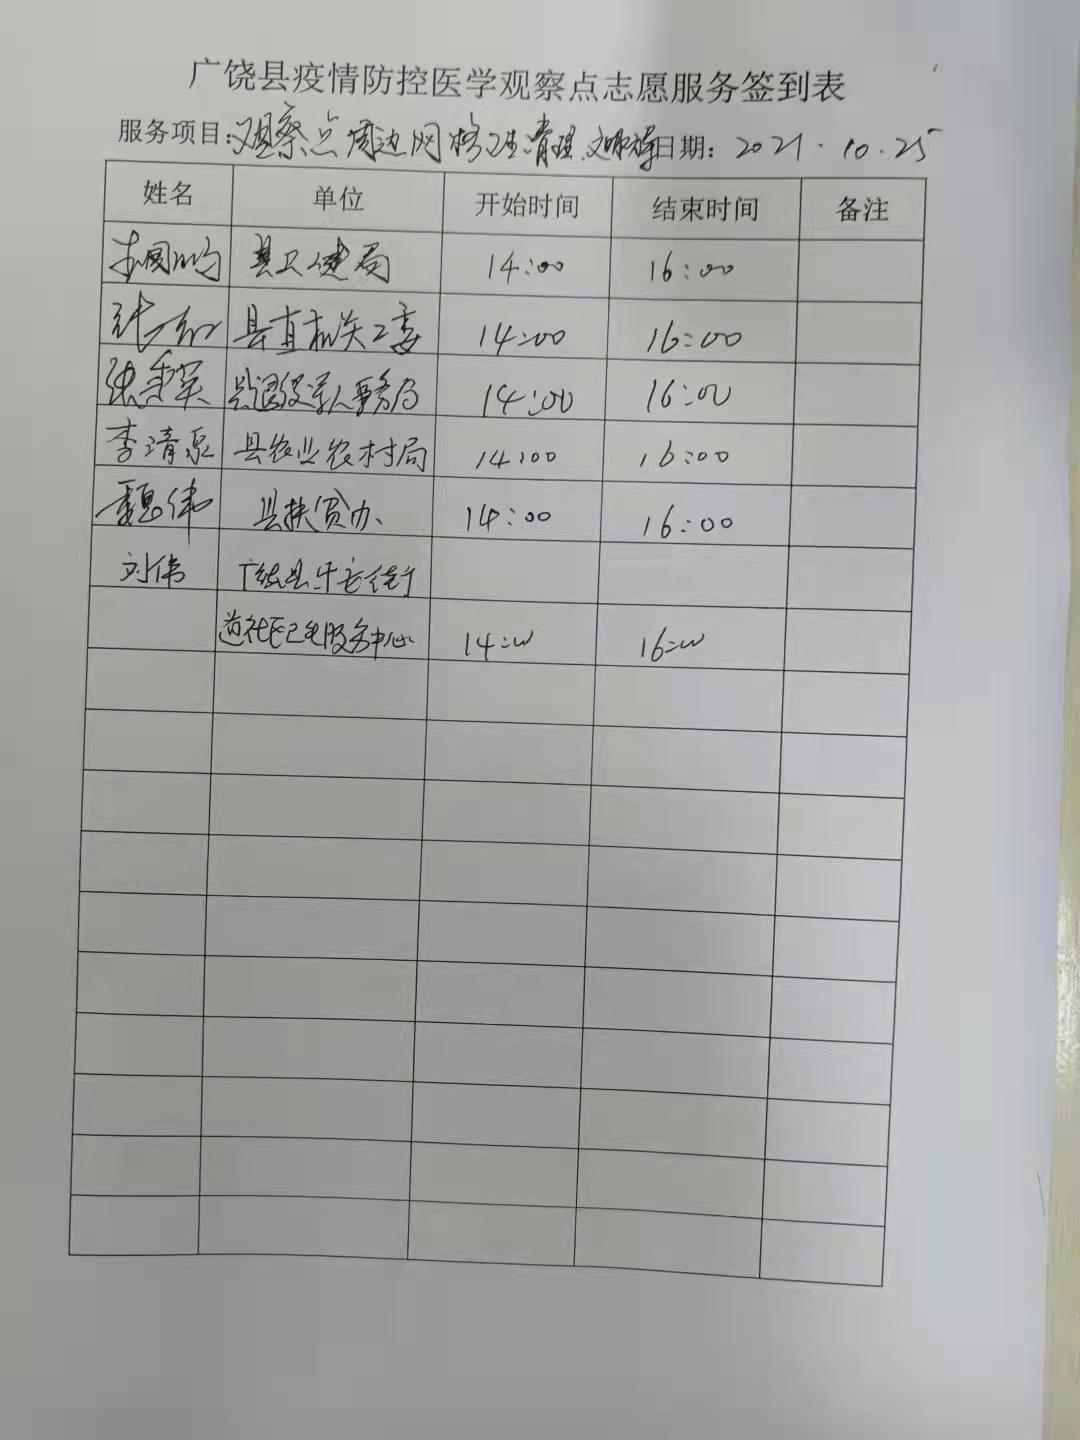 广饶县疫情防控医学观察点志愿服务签到表
服务项目：观察点周边网格卫生清理 日期：2021.10.25
姓名 单位 开始时间 结束时间 备注
县卫健局 14:00 16:00
县直机关工委 14:00 16:00
张秀英 县退役军人事务局 14:00 16:00
李清泉 县农业农村局 14:00 16:00
魏伟 县扶贫办 14:00 16:00
刘伟 广饶县乐安街
道社区卫生服务中心 14:00 16:00